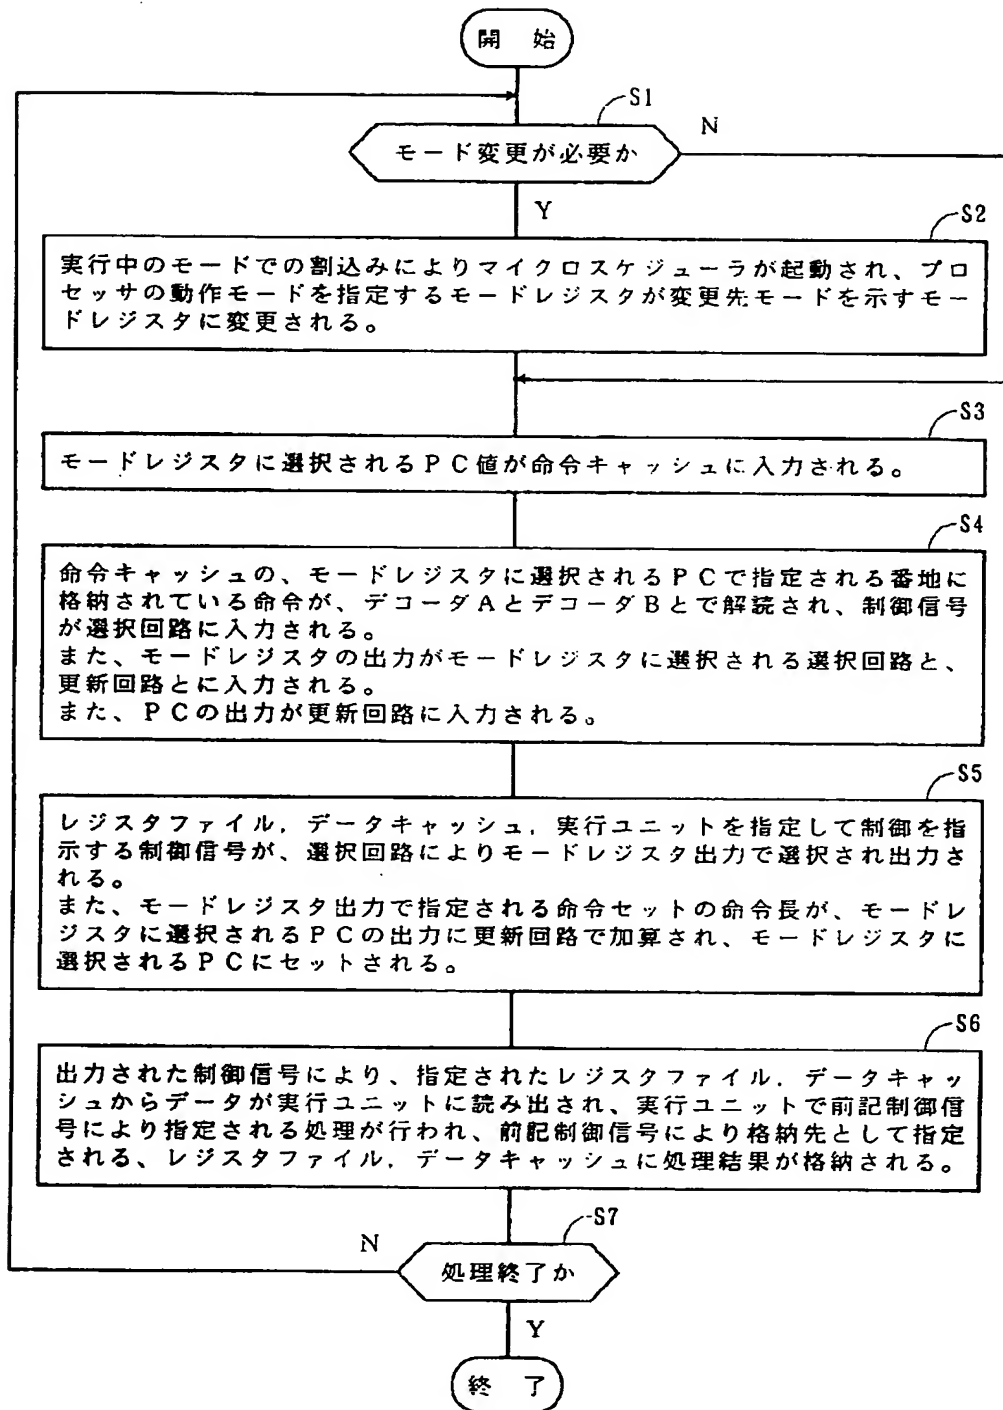 開 始
S1
モード変更が必要か
N
Y
S2
実行中のモードでの割込みによりマイクロスケジューラが起動され、プロ
セッサの動作モードを指定するモードレジスタが変更先モードを示すモー
ドレジスタに変更される。
S3
モードレジスタに選択されるPC値が命令キャッシュに入力される。
S4
命令キャッシュの、モードレジスタに選択されるPCで指定される番地に
格納されている命令が、デコーダAとデコーダBとで解読され、制御信号
が選択回路に入力される。
また、モードレジスタの出力がモードレジスタに選択される選択回路と、
更新回路とに入力される。
また、PCの出力が更新回路に入力される。
S5
レジスタファイル,データキャッシュ,実行ユニットを指定して制御を指
示する制御信号が、選択回路によりモードレジスタ出力で選択され出力さ
れる。
また、モードレジスタ出力で指定される命令セットの命令長が、モードレ
ジスタに選択されるPCの出力に更新回路で加算され、モードレジスタに
選択されるPCにセットされる。
S6
出力された制御信号により、指定されたレジスタファイル,データキャッ
シュからデータが実行ユニットに読み出され、実行ユニットで前記制御信
号により指定される処理が行われ、前記制御信号により格納先として指定
される、レジスタファイル,データキャッシュに処理結果が格納される。
S7
N
処理終了か
Y
終 了